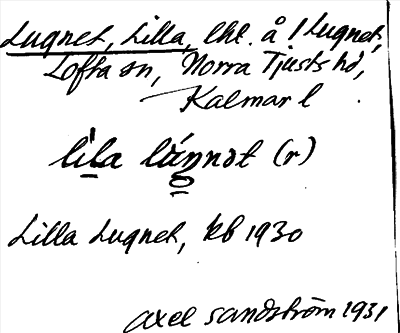 Lugnet, Lilla, lht. å 1 Lugnet,
Lofta sn, Norra Tjusts hd,
Kalmar l.
li̱la lúŋnət (r)
Lilla Lugnet, kb 1930
Axel Sandström 1931